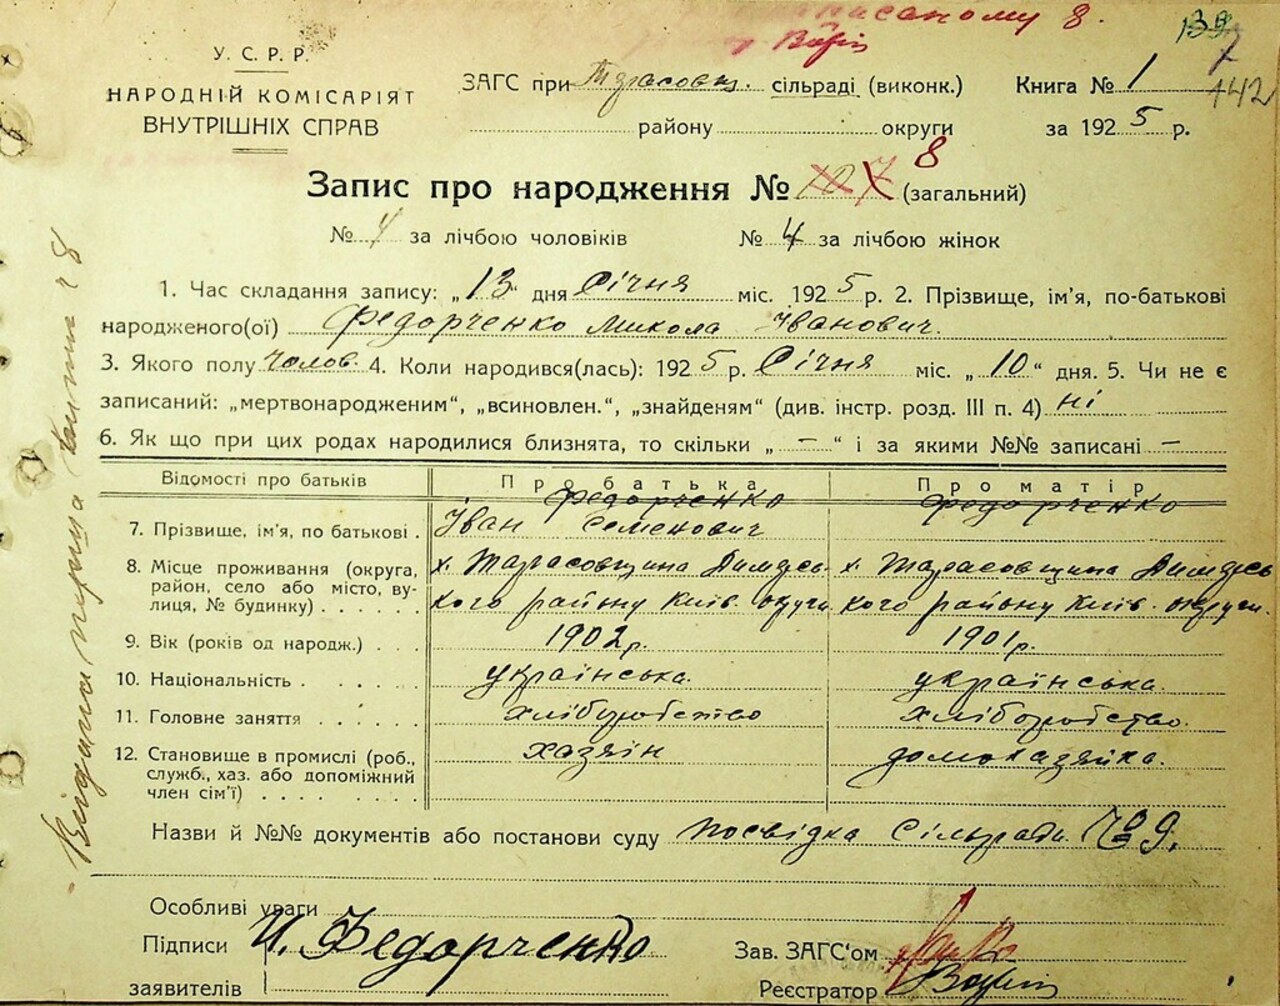 писаному 8.
Вірн
139
142
У. С. Р. Р.
НАРОДНІЙ КОМІСАРІЯТ
ВНУТРІШНІХ СПРАВ
ЗАГС при Тарасовщ. сільраді (виконк.) Книга № 1
району округи за 1925 р.
Запис про народження № 8 (загальний)
№ 4 за лічбою чоловіків № 4 за лічбою жінок
1. Час складання запису: „13" дня Січня міс. 1925 р. 2. Прізвище, ім'я, по-батькові
народженого(ої) Федорченко Микола Іванович.
3. Якого полу Чолов. 4. Коли народився(лась): 1925 р. Січня міс. „10" дня. 5. Чи не є
записаний: „мертвонародженим", „всиновлен.", „знайденям" (див. інстр. розд. III п. 4) ні
6. Як що при цих родах народилися близнята, то скільки „—" і за якими №№ записані —
Відомості про батьків Про батька Про матір
Федорченко Федорченко
7. Прізвище, ім'я, по батькові . Іван Семенович
8. Місце проживання (округа, х. Тарасовщина Димерсь х. Тарасовщина Димерсь
район, село або місто, ву-
лиця, № будинку) . . . . . . кого району Київ. округи кого району Київ. округи.
9. Вік (років од народж.) . . . 1902 р. 1901 р.
10. Національність . . . . . українська. українська.
11. Головне заняття . . . . . хліборобство хліборобство.
12. Становище в промислі (роб., хазяін домохазяйка.
служб., хаз. або допоміжний
член сім'ї) . . . . . . . .
Назви й №№ документів або постанови суду посвідка Сільради № 9.
Особливі уваги
Підписи И. Федорченко Зав. ЗАГС'ом
заявителів Реєстратор
Видана перша